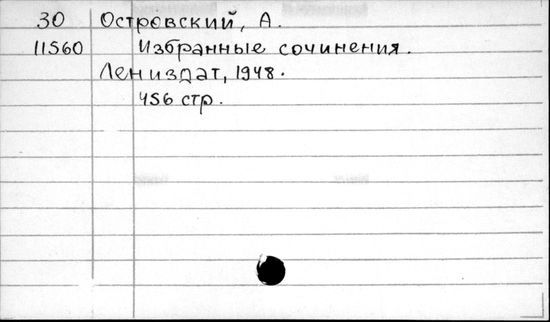 30 Островский, А.
11560 Избранные сочинения.
Лениздат, 1948.
456 стр.